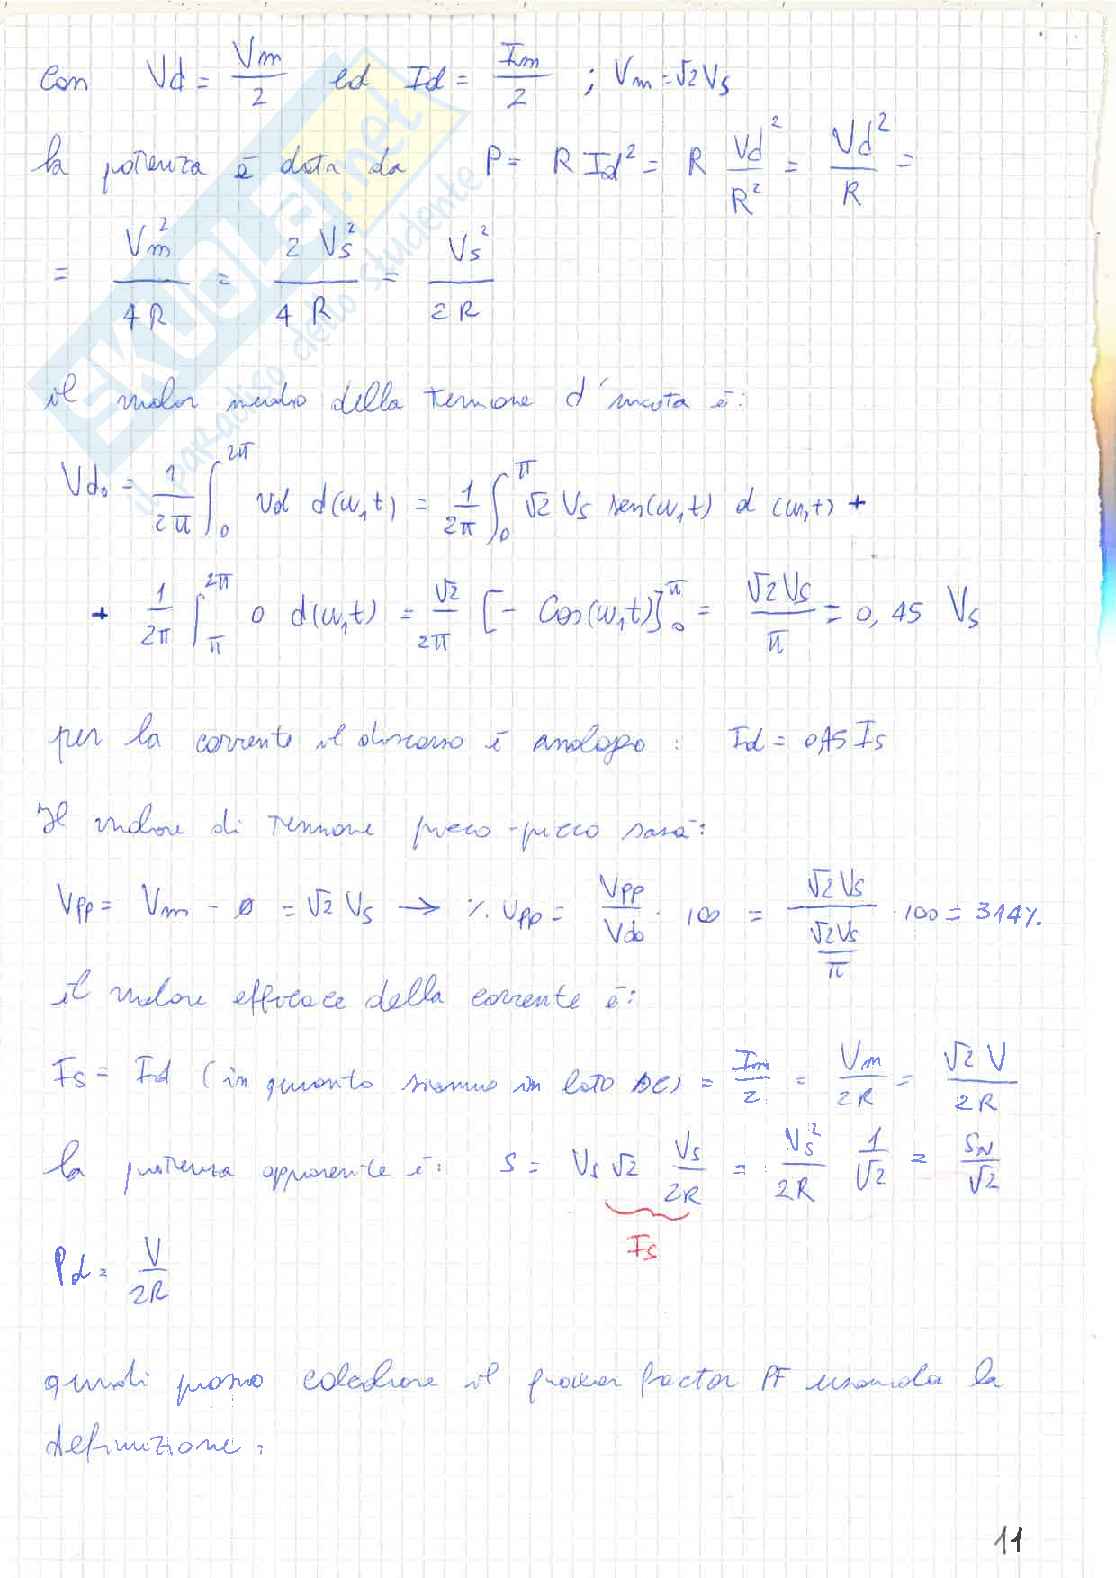 con Vd = Vm/2 ed Id = Im/2 ; Vm = √2 Vs
la potenza è data da P = R Id² = R Vd²/R² = Vd²/R =
= Vm²/4R = 2 Vs²/4R = Vs²/2R
il valor medio della tensione d'uscita è:
Vd₀ = 1/2π ∫₀^2π vd d(ω₁t) = 1/2π ∫₀^π √2 Vs sen(ω₁t) d(ω₁t) +
+ 1/2π ∫π^2π 0 d(ω₁t) = √2/2π [- Cos(ω₁t)]₀^π = √2Vs/π = 0,45 Vs
per la corrente il discorso è analogo : Id = 0,45 Is
Il valore di tensione picco-picco sarà:
Vpp = Vm - 0 = √2 Vs → % Vpp = Vpp/Vdo · 100 = √2Vs/(√2Vs/π) · 100 = 314%.
il valore efficace della corrente è:
Is = Id (in quanto siamo in lato DC) = Im/2 = Vm/2R = √2 V/2R
la potenza apparente è: S = Vs √2 Vs/2R = Vs²/2R 1/√2 = SN/√2
Is
Pd = V/2R
quindi posso calcolare il power factor PF usando la
definizione:
11
SKUOLA.net
il paradiso dello studente